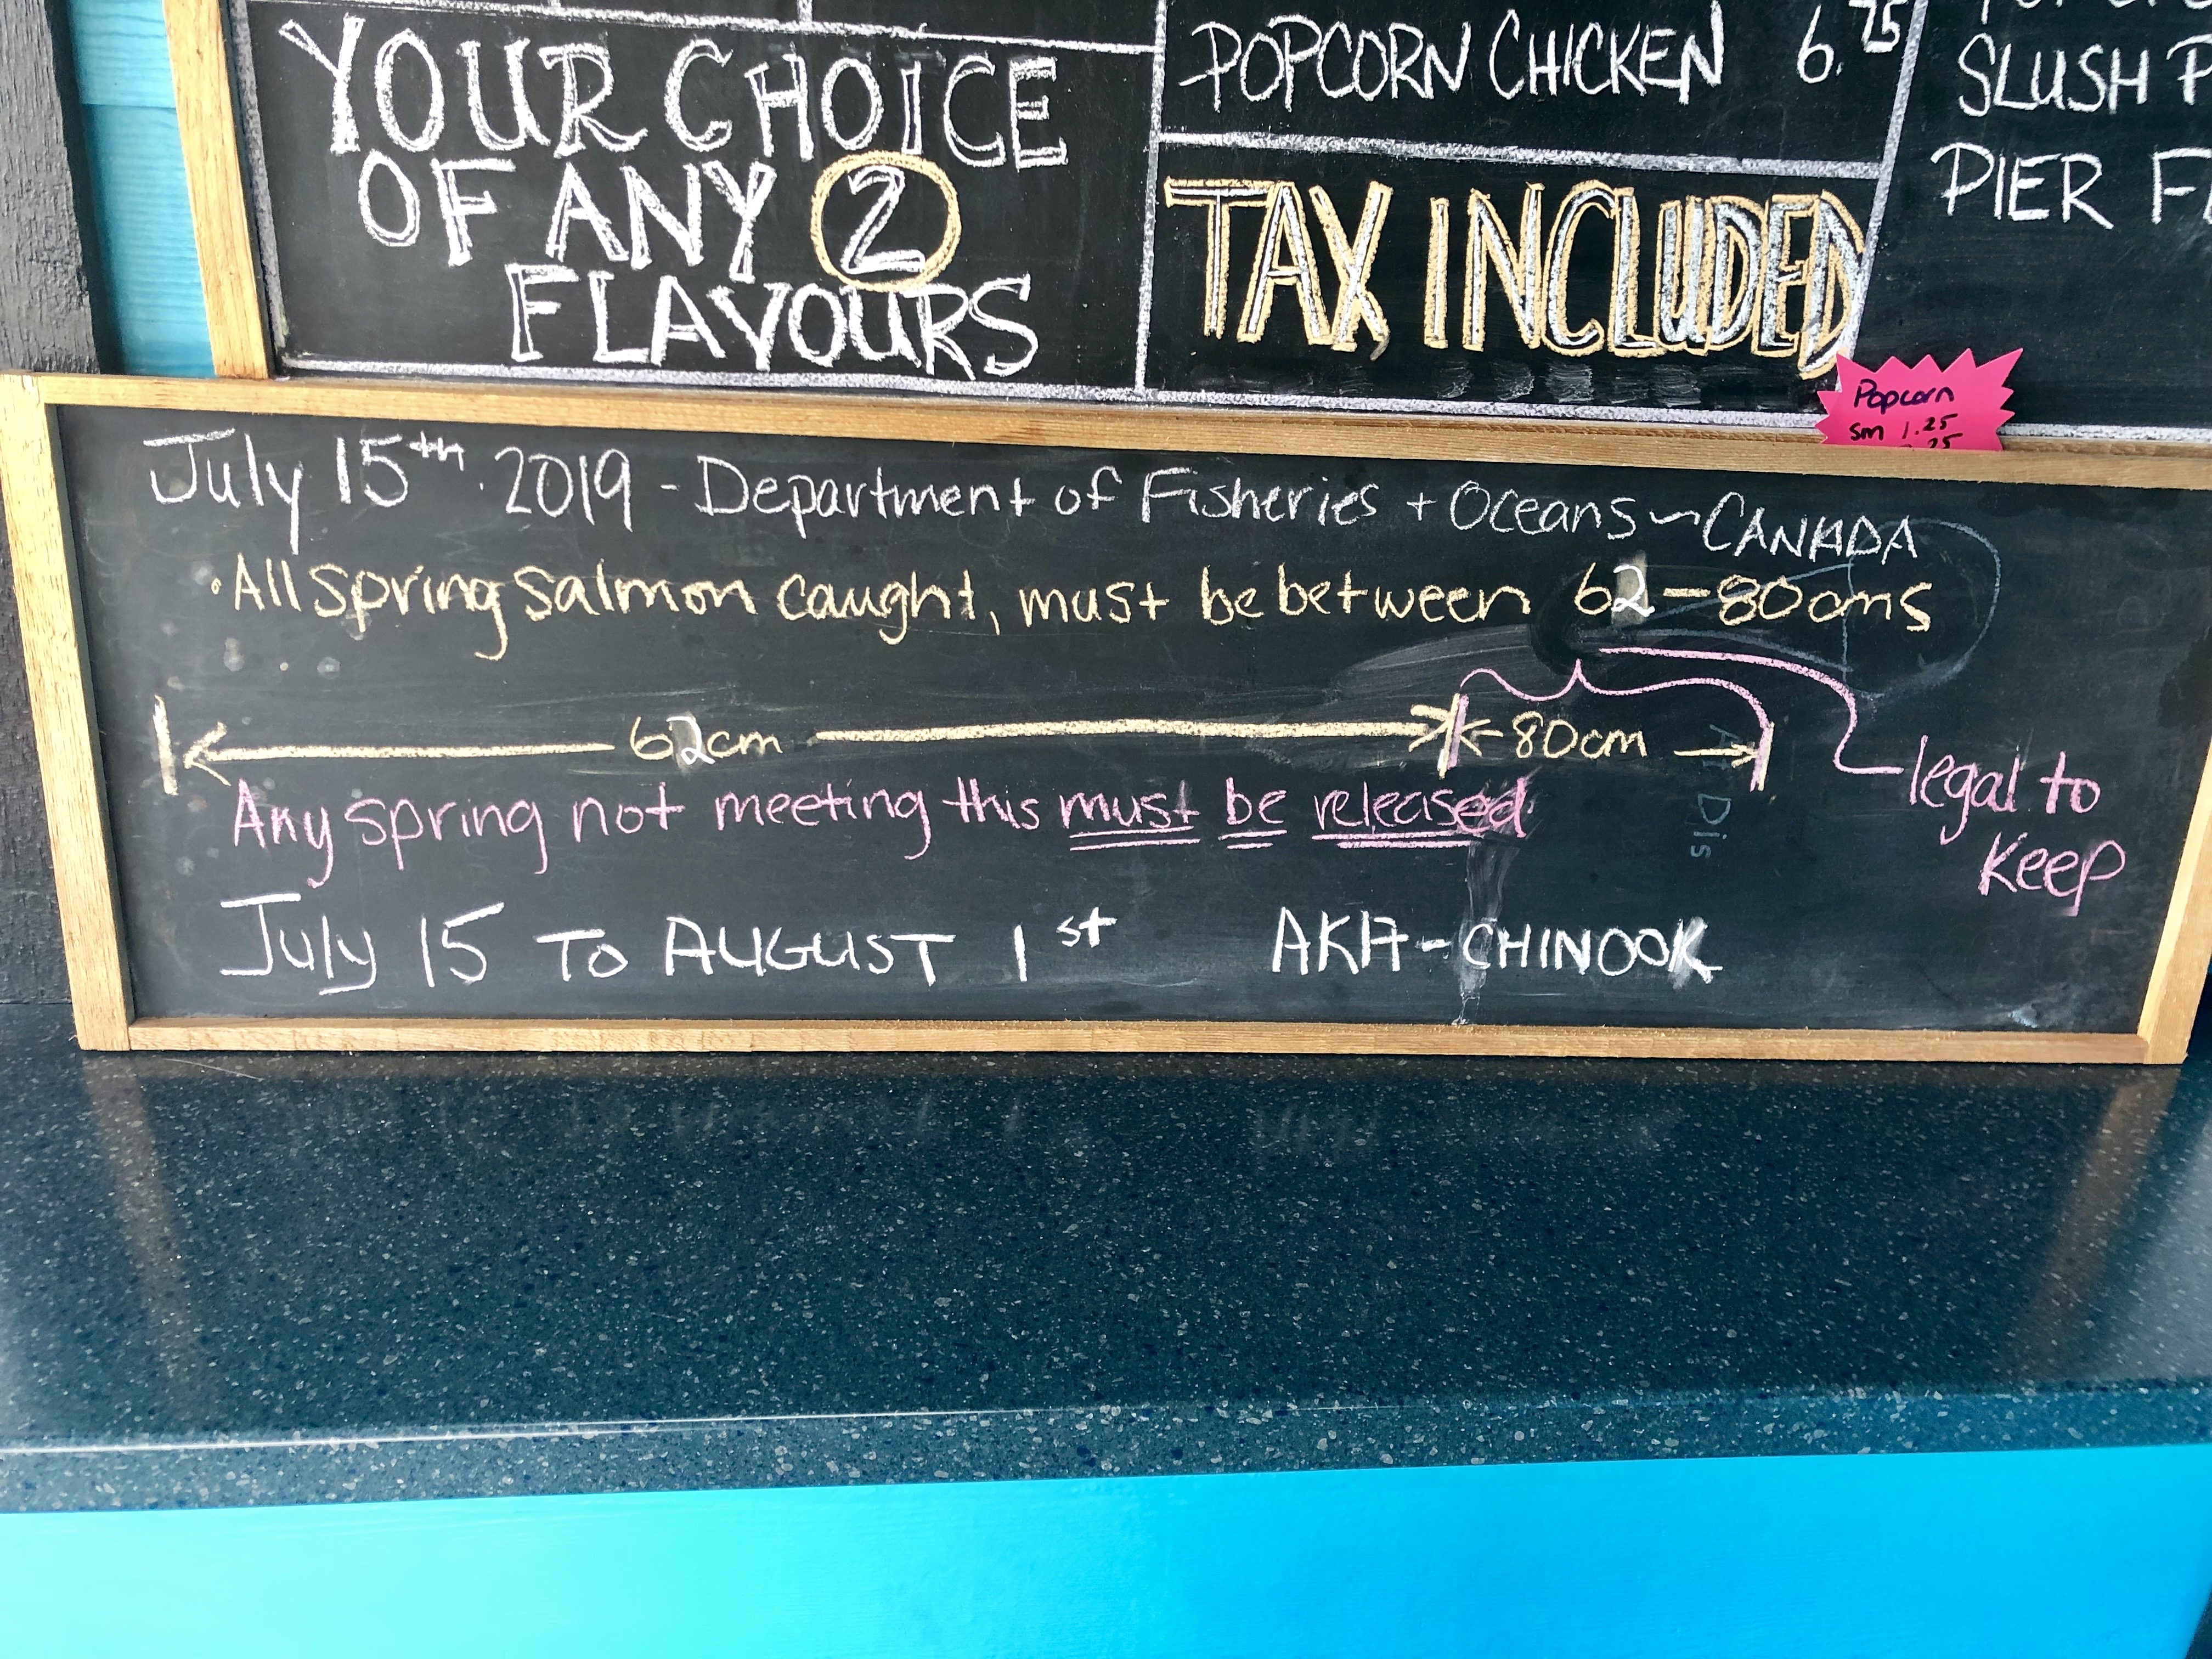 YOUR CHOICE
OF ANY 2
FLAVOURS
POPCORN CHICKEN 6.75
TAX INCLUDED
SLUSH P
PIER F
Popcorn
sm 1.25
.25
July 15th 2019 - Department of Fisheries + Oceans ~ CANADA
• All spring salmon caught, must be between 62 - 80cms
62cm
80cm
legal to
Keep
Any spring not meeting this must be released
July 15 TO AUGUST 1st AKA - CHINOOK
Dis